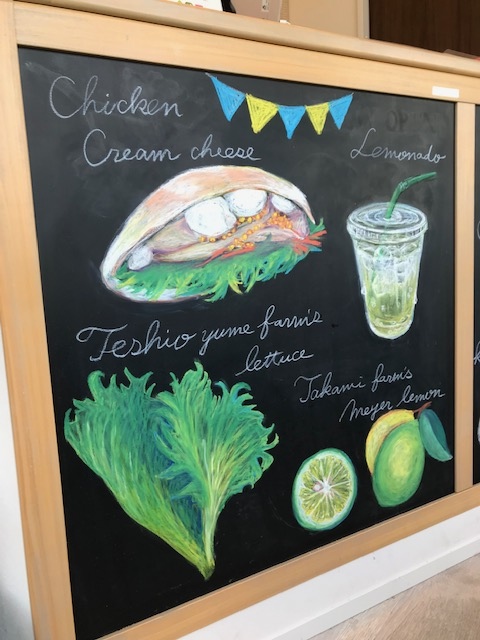 Chicken
Cream cheese
Lemonado
Teshio yume farm's
lettuce
Takami farm's
meyer lemon